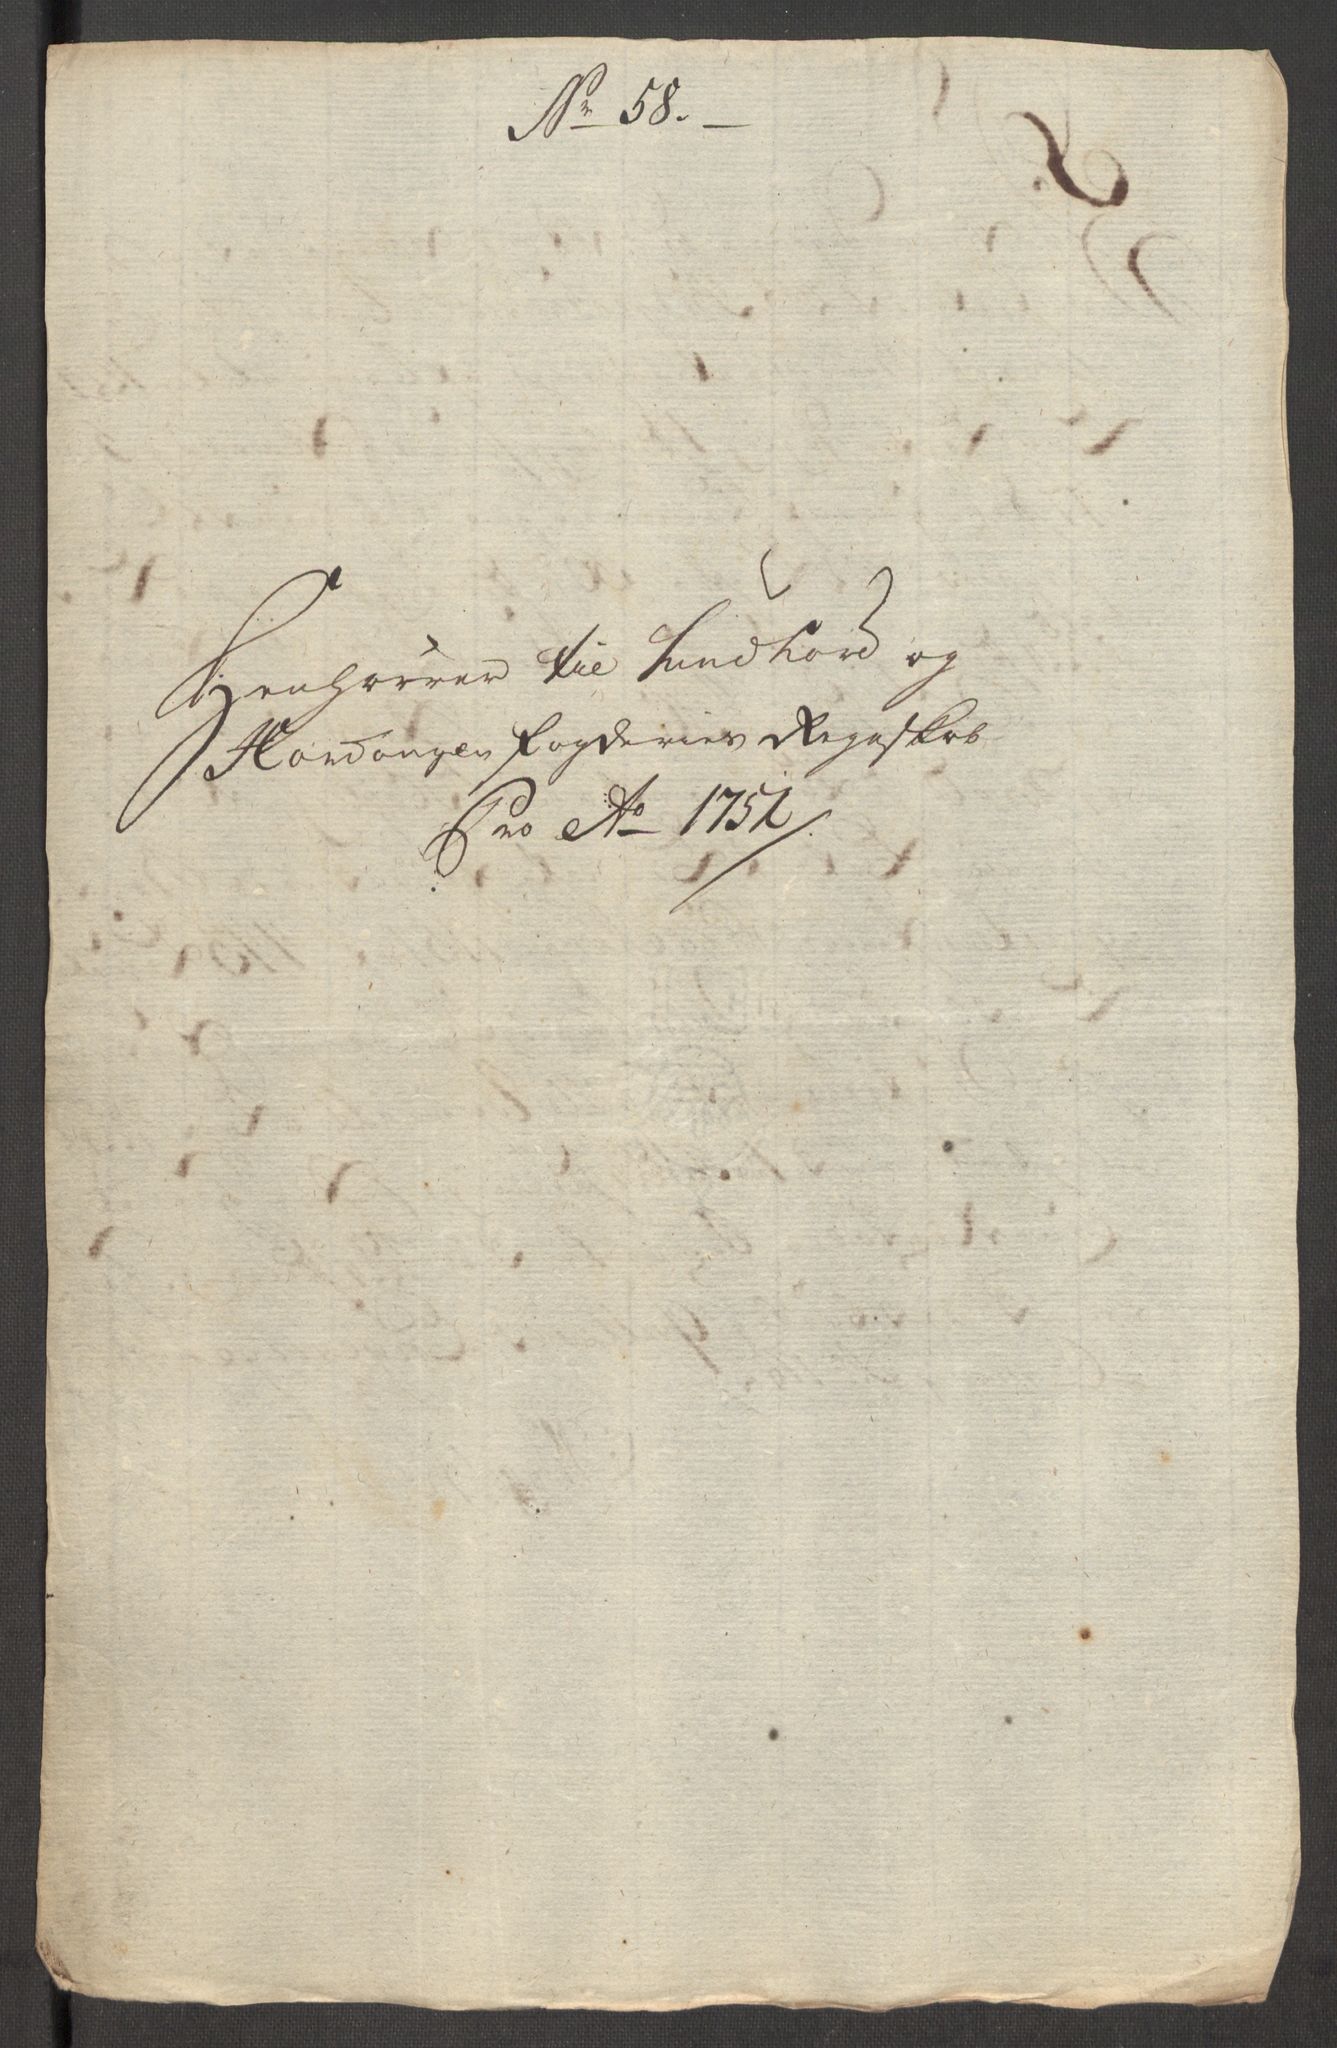 Nr 58.
Henhörer til Sundhord og
Hardanger Fogderies Regnskab
Pro Ao 1751